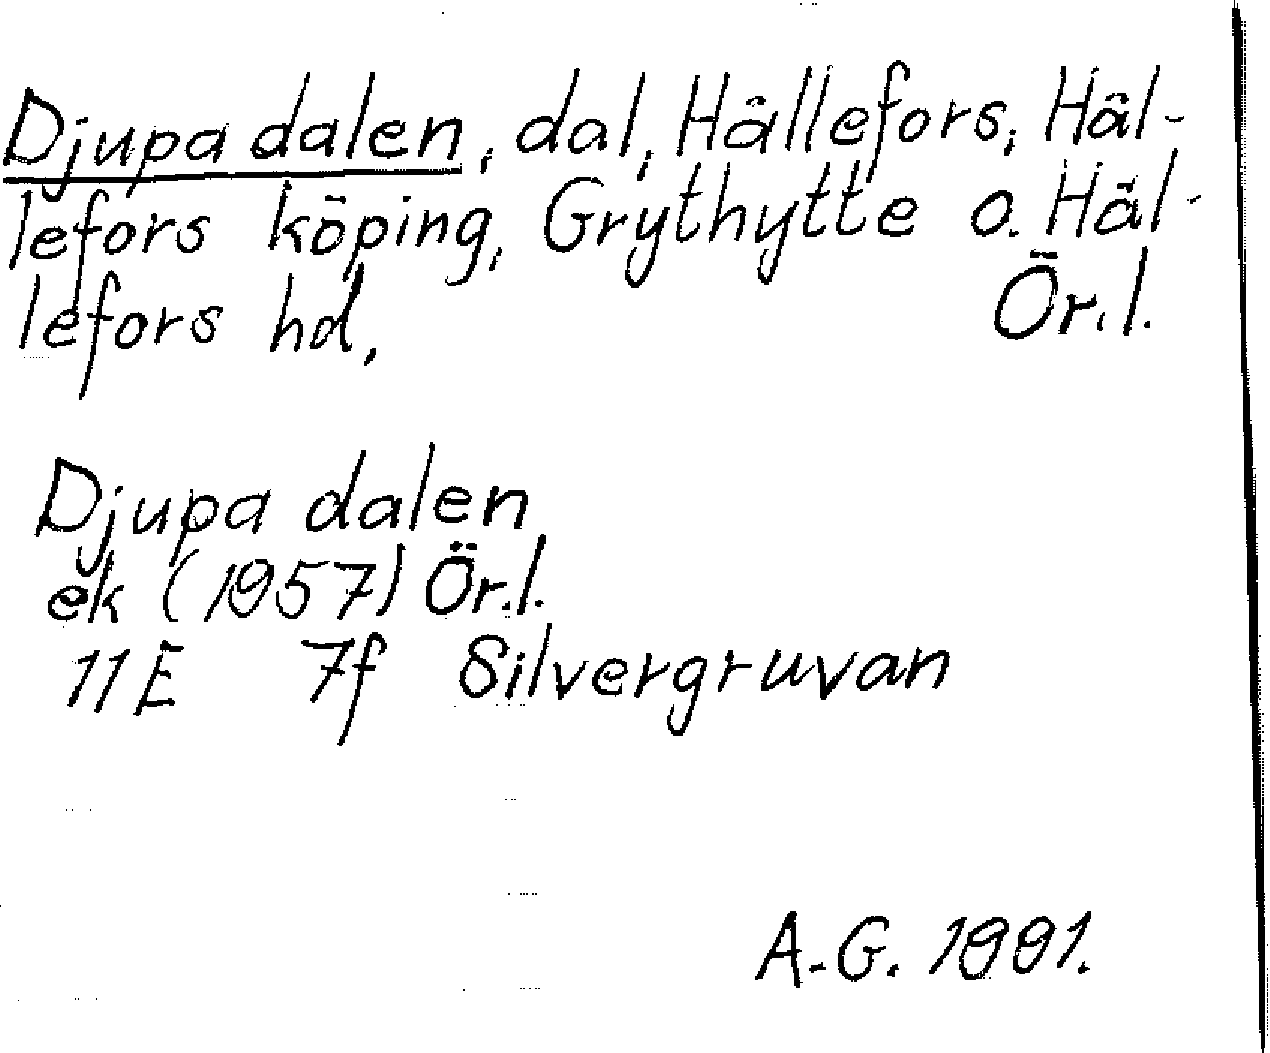 Djupa dalen, dal, Hällefors, Häl-
lefors köping, Grythytte o. Häl-
lefors hd, Ör.l.
Djupa dalen
ek (1957) Ör.l.
11E 7f Silvergruvan
A.G. 1991.